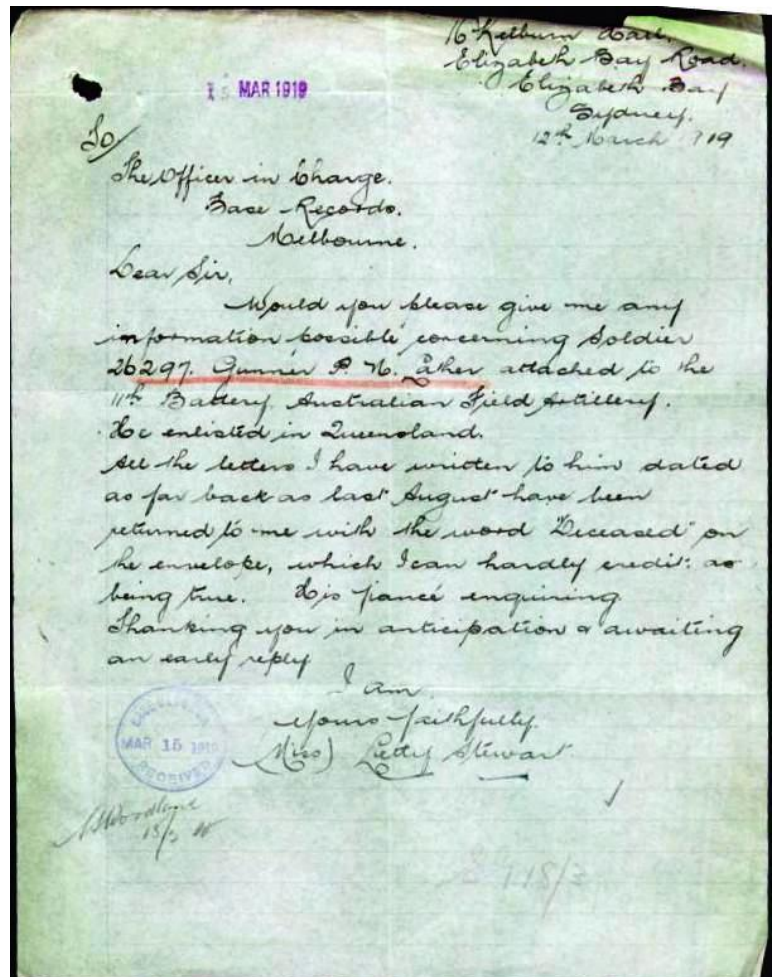 16 Kelburn Hall.
Elizabeth Bay Road.
Elizabeth Bay
Sydney.
12th March 1919
15 MAR 1919
To/
The Officer in Charge.
Base Records.
Melbourne.
Dear Sir,
Would you please give me any
information possible concerning Soldier
26297. Gunner P. N. Laker attached to the
11th Battery Australian Field Artillery.
He enlisted in Queensland.
All the letters I have written to him dated
as far back as last August have been
returned to me with the word "Deceased" on
the envelope, which I can hardly credit as
being true. His fiancé enquiring
Thanking you in anticipation & awaiting
an early reply
I am
Yours faithfully.
(Miss) Letty Stewart.
MAR 15 1919
RECEIVED